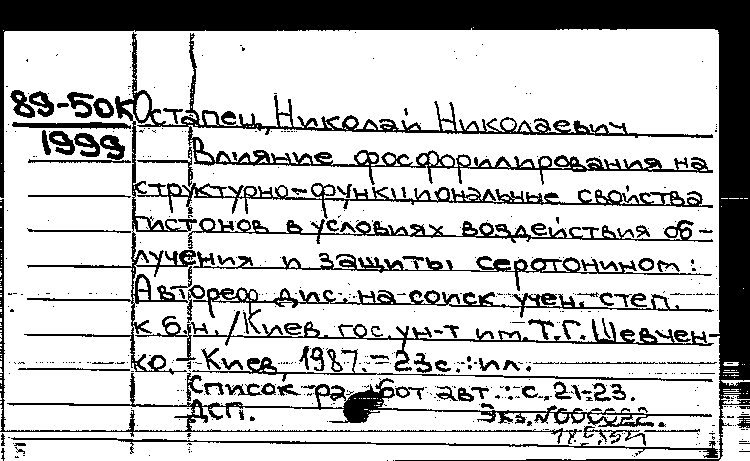 89-50к Остапец, Николай Николаевич.
1999
Влияние фосфорилирования на
структурно-функциональные свойства
гистонов в условиях воздействия об-
лучения и защиты серотонином:
Автореф дис. на соиск. учен. степ.
к.б.н. /Киев. гос. ун-т им. Т.Г. Шевчен-
ко. - Киев, 1987. - 23с. : ил.
Список ра бот авт.: с. 21-23.
ДСП. Экз. N000022.